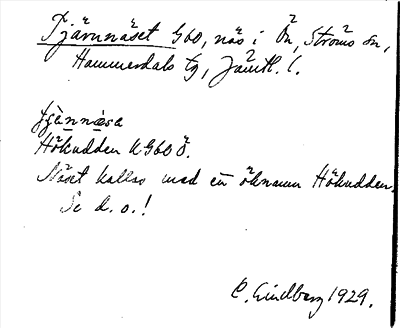 Tjärnnäset G60, näs i Ön, Ströms sn,
Hammerdals tg, Jämtl. l.
Hökudden KG60 Ö.
Näset kallas med en öknamn Hökudden.
Se d. o.!
C. Lindberg 1929.